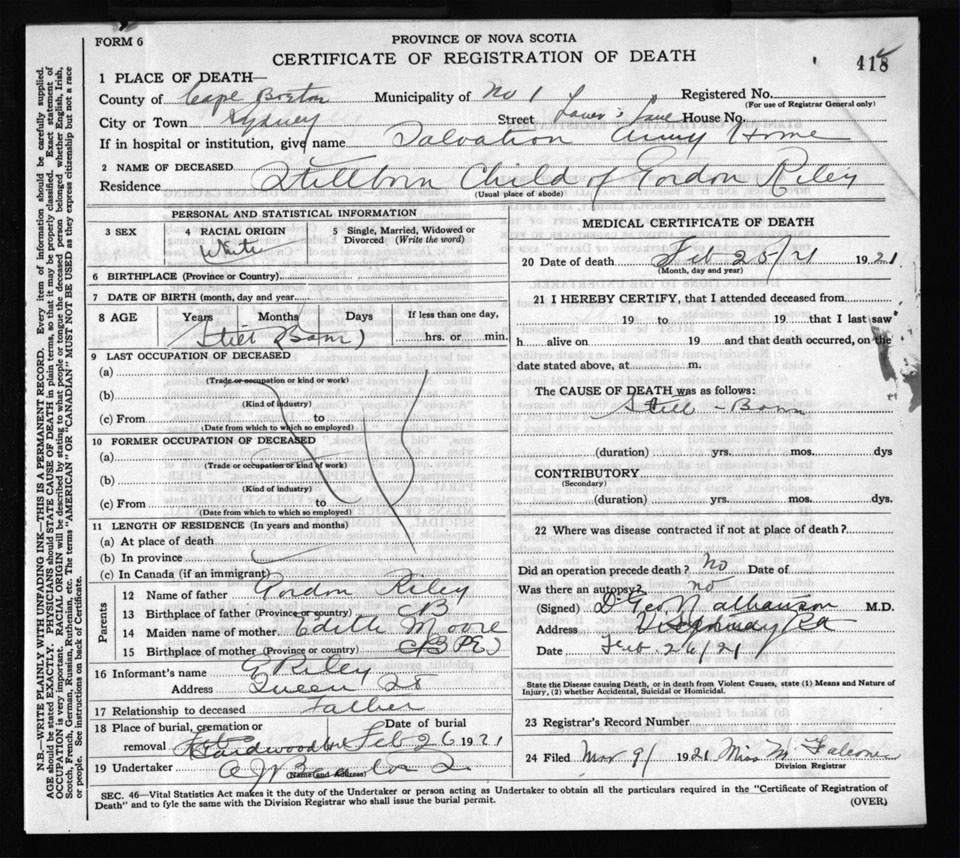 FORM 6
PROVINCE OF NOVA SCOTIA
CERTIFICATE OF REGISTRATION OF DEATH
418
1 PLACE OF DEATH—
County of Cape Breton Municipality of No 1 Registered No.
(For use of Registrar General only)
City or Town Sydney Street Lover's Lane House No.
If in hospital or institution, give name Salvation Army Home
2 NAME OF DECEASED Stillborn Child of Gordon Riley
Residence
(Usual place of abode)
PERSONAL AND STATISTICAL INFORMATION
3 SEX
4 RACIAL ORIGIN White
5 Single, Married, Widowed or Divorced (Write the word)
6 BIRTHPLACE (Province or Country)
7 DATE OF BIRTH (month, day and year)
8 AGE Years Months Days If less than one day,
Still Born hrs. or min.
9 LAST OCCUPATION OF DECEASED
(a)
(Trade or occupation or kind or work)
(b)
(Kind of industry)
(c) From to
(Date from which to which so employed)
10 FORMER OCCUPATION OF DECEASED
(a)
(Trade or occupation or kind of work)
(b)
(Kind of industry)
(c) From to
(Date from which to which so employed)
11 LENGTH OF RESIDENCE (In years and months)
(a) At place of death
(b) In province
(c) In Canada (if an immigrant)
Parents
12 Name of father Gordon Riley
13 Birthplace of father (Province or country) CB
14 Maiden name of mother Edith Moore
15 Birthplace of mother (Province or country) PEI
16 Informant's name G Riley
Address Queen St
17 Relationship to deceased Father
18 Place of burial, cremation or removal Hardwood Date of burial Feb 26 1921
19 Undertaker
(Name and Address)
MEDICAL CERTIFICATE OF DEATH
20 Date of death Feb 25/21 1921
(Month, day and year)
21 I HEREBY CERTIFY, that I attended deceased from
19 to 19 that I last saw
h alive on 19 and that death occurred, on the
date stated above, at m.
The CAUSE OF DEATH was as follows:
Still-Born
(duration) yrs. mos. dys
CONTRIBUTORY
(Secondary)
(duration) yrs. mos. dys.
22 Where was disease contracted if not at place of death?
Did an operation precede death? No Date of
Was there an autopsy? no
(Signed) D Geo. Nathanson M.D.
Address
Date Feb 26/21
State the Disease causing Death, or in death from Violent Causes, state (1) Means and Nature of
Injury, (2) whether Accidental, Suicidal or Homicidal.
23 Registrar's Record Number
24 Filed Mar 9/ 1921 Miss M Falconer
Division Registrar
SEC. 46—Vital Statistics Act makes it the duty of the Undertaker or person acting as Undertaker to obtain all the particulars required in the "Certificate of Registration of
Death" and to fyle the same with the Division Registrar who shall issue the burial permit.
(OVER)
N.B.—WRITE PLAINLY WITH UNFADING INK—THIS IS A PERMANENT RECORD. Every item of information should be carefully supplied.
AGE should be stated EXACTLY. PHYSICIANS should STATE CAUSE OF DEATH in plain terms, so that it may be properly classified. Exact statement of
OCCUPATION is very important. RACIAL ORIGIN will be described by stating to what people or tongue the deceased person belonged, whether English, Irish,
Scotch, French, German, Russian, Ruthenian, etc. The terms "AMERICAN" OR "CANADIAN" MUST NOT BE USED as they express citizenship but not a race
or people. See instructions on back of Certificate.